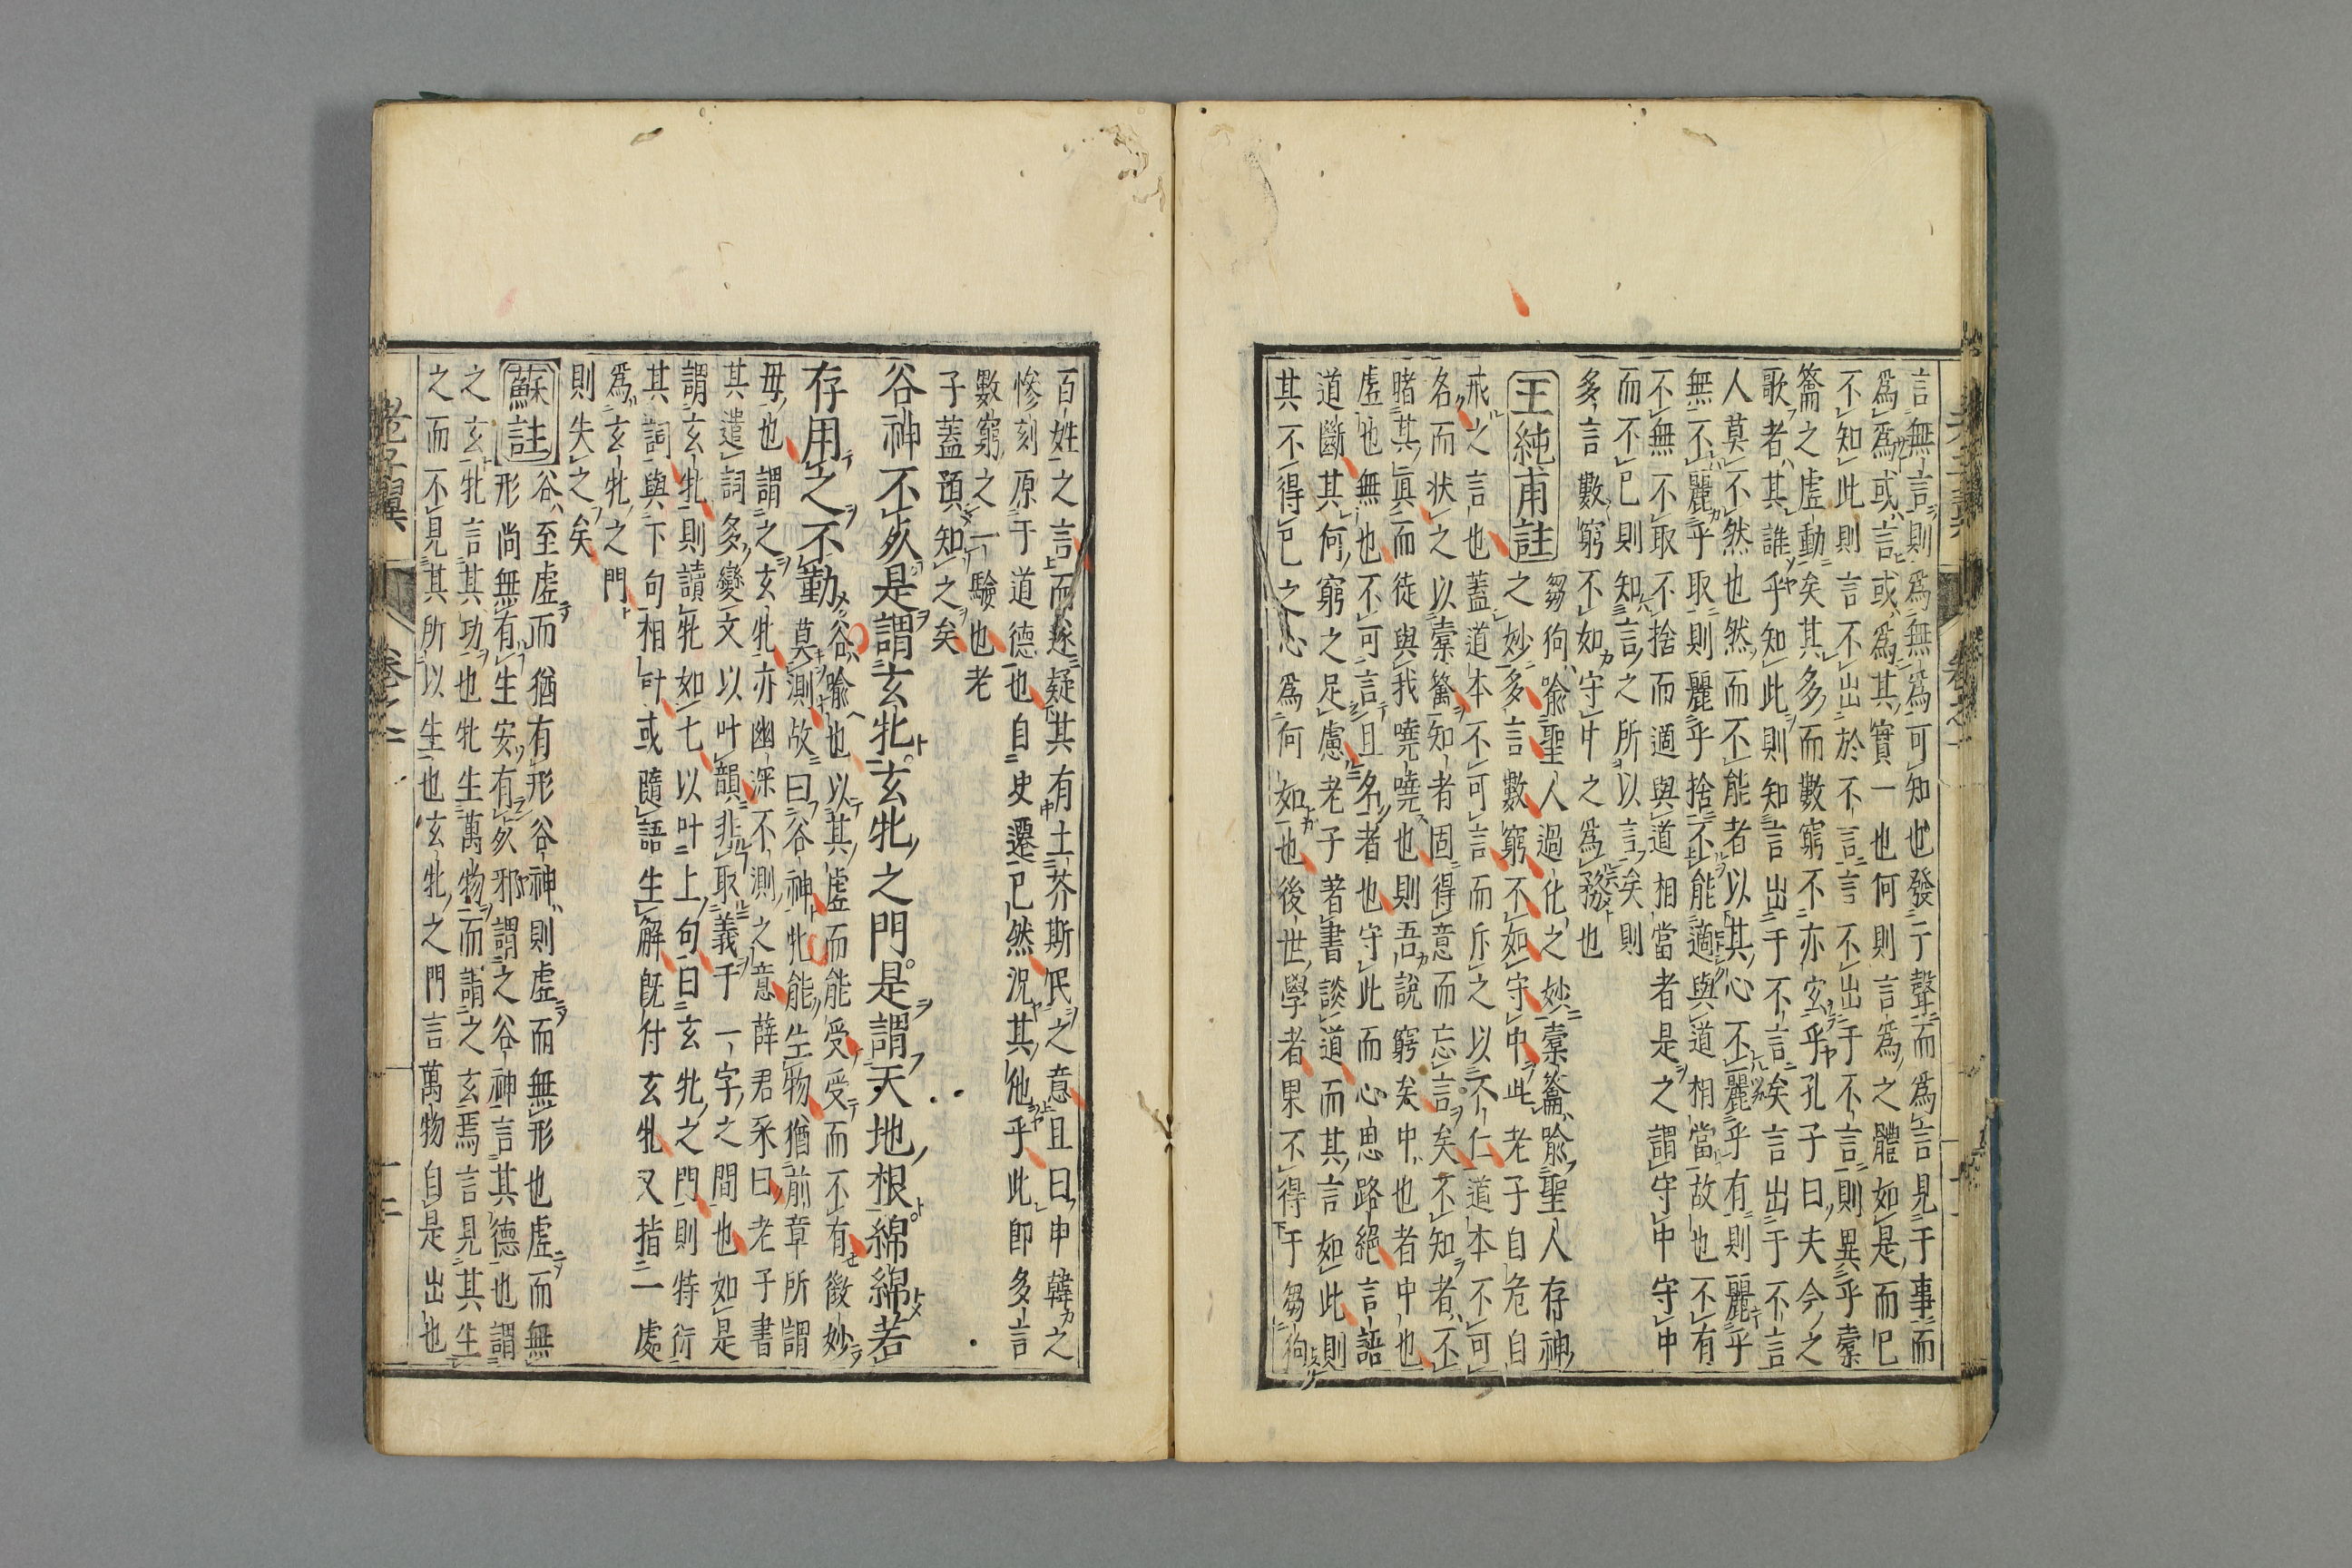 言無言則爲無爲可知也發一聲而爲言見于事而
爲爲或言或爲其實一也何則言爲之體如是而已
不知此則言不出於不言言不出于不言則異乎橐
籥之虛動矣其多而數窮不亦宜乎孔子曰夫今之
歌者其誰乎知此則知言出于不言矣言出于不言
人莫不然也然而不能者以其心不麗乎有則麗乎
無不麗乎取則麗乎捨不能適與道相當故也不有
不無不取不捨而適與道相當者是之謂守中守中
而不已則知言之所以言矣則
多言數窮不如守中之爲務也
王純甫註 芻狗喻聖人過化之妙橐籥喻聖人存神
之妙多言數窮不如守中此老子自危自
戒之言也蓋道本不可言而斥之以不仁道本不可
名而状之以橐籥知者固得意而忘言矣不知者不
睹其眞而徒與我嘵嘵也則吾說窮矣中也者中也
虛也無也不可言且名者也守此而心思路絕言語
道斷其何窮之足慮老子著書談道而其言如此則
其不得已之心爲何如也後世學者果不得于芻狗
百姓之言而遂疑其有土芥斯民之意且曰申韓之
慘刻原于道德也自史遷已然況其他乎此即多言
數窮之一驗也老
子蓋預知之矣
谷神不死是謂玄牝玄牝之門是謂天地根綿綿若
存用之不勤 谷喻也以其虛而能受受而不有微妙
莫測故曰谷神牝能生物猶前章所謂
毋也謂之玄牝亦幽深不測之意薛君采曰老子書
其遣詞多變文以叶韻非取義于一字之間也如是
謂玄牝則讀牝如七以叶上句曰玄牝之門則特衍
其詞與下句相叶或隨語生解既付玄牝又指一處
爲玄牝之門
則失之矣
蘇註 谷至虛而猶有形谷神則虛而無形也虛而無
形尚無有生安有死邪謂之谷神言其德也謂
之玄牝言其功也牝生萬物而謂之玄焉言見其生
之而不見其所以生也玄牝之門言萬物自是出也
老子翼
卷之一
十二